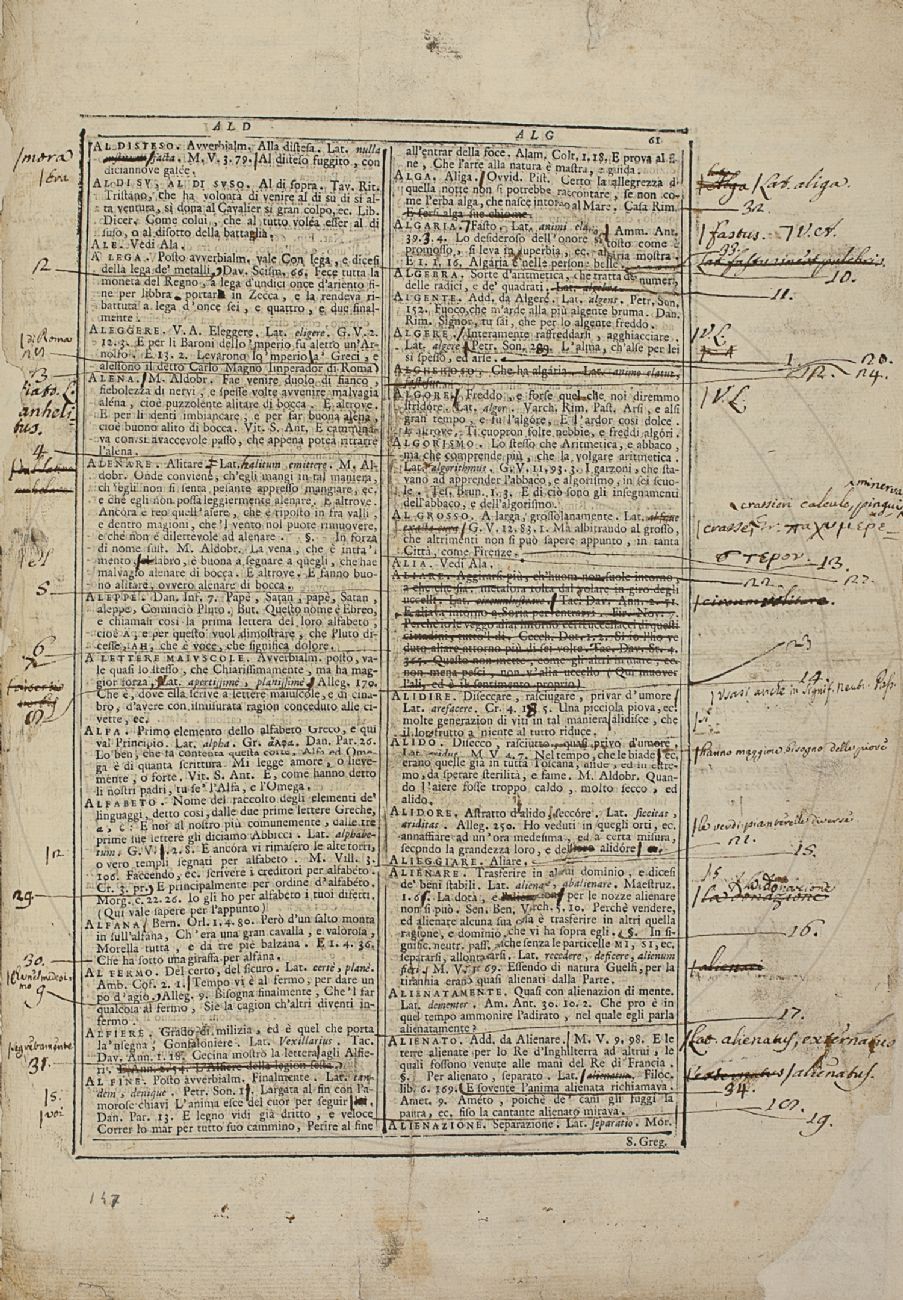 ALD
ALG
61
AL DISTESO. Avverbialm. Alla distesa. Lat. nulla
fasta. M. V. 3. 79. Al disteso fuggito, con
diciannove galée.
AL DI SU, AL DI SUSO. Al di sopra. Tav. Rit.
Tristano, che ha volontà di venire al di su di sì al-
ta ventura, sì dona al Cavalier sì gran colpo, ec. Lib.
Dicer. Come colui, che al tutto voléa esser al di
suso, o al disotto della battaglia.
ALE. Vedi Ala.
A LEGA. Posto avverbialm. vale Con lega, e dicesi
della lega de' metalli, Dav. Scism. 66. Fece tutta la
moneta del Regno, a lega d'undici once d'ariento fi-
ne per libbra portar in Zecca, e la rendeva ri-
battuta a lega d'once sei, e quattro, e due final-
mente.
ALEGGERE. V. A. Eleggere. Lat. eligere. G. V. 2.
12. 3. E per li Baroni dello 'mperio fu aletto un'Ar-
nolfo. E 13. 2. Levarono lo 'mperio a' Greci, e
alessono il detto Carlo Magno Imperador di Roma
ALENA. M. Aldobr. Fae venire duolo di fianco,
fiebolezza di nervi, e spesse volte avvenire malvagia
aléna, cioè puzzolente alitare di bocca. E altrove.
E per li denti imbiancare, e per far buona aléna,
cioè buono alito di bocca. Vit. S. Ant. E cammina-
va con sì avaccevole passo, che appena potea ritrarre
l'aléna.
ALENARE. Alitare. Lat. halitum emittere. M. Al-
dobr. Onde conviene, ch'egli mangi in tal maniera,
ch'egli non si senta pesante appresso mangiare, ec.
e ch'egli non possa leggiermente alenare. E altrove.
Ancora è reo quell'aiere, che è riposto in fra valli,
e dentro magioni, che 'l vento nol puote rimuovere,
e che non è dilettevole ad alenare. §. In forza
di nome sust. M. Aldobr. La vena, che è intra 'l
mento, labro, è buona a segnare a quegli, che hae
malvagio alenare di bocca. E altrove. E fanno buo-
no alitare, ovvero alenare di bocca.
ALEPPE. Dan. Inf. 7. Papè, Satan, papè, Satan,
aleppe, Cominciò Pluto. But. Questo nome è Ebreo,
e chiamasi così la prima lettera del loro alfabeto,
cioè A; e per questo vuol dimostrare, che Pluto di-
cesse, IAH, che è voce, che significa dolore.
A LETTERE MAIUSCOLE. Avverbialm. posto, va-
le quasi lo stesso, che Chiarissimamente, ma ha mag-
gior forza. Lat. apertissimè, planissimè. Alleg. 170.
Che è, dove ella scrive a lettere maiuscole, e di cina-
bro, d'avere con ismisurata ragion conceduto alle ci-
vette, ec.
ALFA. Primo elemento dello alfabeto Greco, e qui
val Principio. Lat. alpha. Gr. ἄλφα. Dan. Par. 26.
Lo ben, che fa contenta questa corte, Alfa ed Ome-
ga è di quanta scrittura. Mi legge amore, o lieve-
mente, o forte. Vit. S. Ant. E, come hanno detto
li nostri padri, tu se' l'Alfa, e l'Omega.
ALFABETO. Nome del raccolto degli elementi de'
linguaggi, detto così, dalle due prime lettere Greche,
α, β: E noi al nostro più comunemente, dalle tre
prime sue lettere gli diciamo Abbiccì. Lat. alphabe-
tum. G. V. 1. 2. 8. E ancora vi rimasero le alte torri,
o vero templi segnati per alfabeto. M. Vill. 3.
106. Faccendo, ec. scrivere i creditori per alfabéto.
Cr. 3. pr. E principalmente per ordine d'alfabéto.
Morg. c. 22. 26. Io gli ho per alfabeto i tuoi difetti.
(Qui vale sapere per l'appunto)
ALFANA. Bern. Orl. 1. 4. 80. Però d'un salto monta
in sull'alfana, Ch'era una gran cavalla, e valorosa,
Morella tutta, e da tre piè balzana. E 1. 4. 36.
Che ha sotto una giraffa per alfána.
AL FERMO. Del certo, del sicuro. Lat. certè, planè.
Amb. Cof. 2. 1. Tempo vi è al fermo, per dare un
po d'agio. Alleg. 9. Bisogna finalmente, Che 'l far
qualcosa al fermo, Sie la cagion ch'altri diventi in-
fermo.
ALFIERE. Grado di milizia, ed è quel che porta
la 'nsegna, Gonfaloniere. Lat. Vexillarius. Tac.
Dav. Ann. 1. 18. Cecina mostrò la lettera agli Alfie-
ri. E Ann. 2. 54. L'Alfiere della legion sesta.
AL FINE. Posto avverbialm. Finalmente. Lat. tan-
dem, denique. Petr. Son. 1. Largata al fin con l'a-
morose chiavi L'anima esce del cuor per seguir
Dan. Par. 13. E legno vidi già dritto, e veloce
Correr lo mar per tutto suo cammino, Perire al fine
all'entrar della foce. Alam. Colt. 1. 18. E prova al fi-
ne, Che l'arte alla natura è mastra, e guida.
ALGA. Aliga. Ovvid. Pist. Certo la allegrezza di
quella notte non si potrebbe raccontare, se non co-
me l'erba alga, che nasce intorno al Mare. Casa Rim.
E sorsi alga sue chiome.
ALGARIA. Fasto. Lat. animi elatio. Amm. Ant.
39. 3. 4. Lo desideroso dell'onore sì tosto come è
promosso, si leva in superbia, ec. algaria mostra.
E 11. 1. 16. Algaria è nelle persone belle
ALGEBRA. Sorte d'aritmetica, che tratta de' numeri,
delle radici, e de' quadrati. Lat. algebra.
ALGENTE. Add. da Algere. Lat. algens. Petr. Son.
152. Fuoco, che m'arde alla più algente bruma. Dan.
Rim. Signor, tu sai, che per lo algente freddo.
ALGERE. Interamente raffreddarsi, agghiacciare.
Lat. algere. Petr. Son. 289. L'alma, ch'alse per lei
sì spesso, ed arse.
ALGHEROSO. Che ha algaria. Lat. animo elatus,
fastosus.
ALGORE. Freddo, e forse quel che noi diremmo
stridóre. Lat. algor. Varch. Rim. Past. Arsi, e alsi
gran tempo, e fu l'algóre, E l'ardor così dolce.
E altrove. Ti cuopron folte nebbie, e freddi algóri.
ALGORISMO. Lo stesso che Aritmetica, e abbaco,
ma che comprende più, che la volgare aritmetica.
Lat. algorithmus. G. V. 11. 93. 3. I garzoni, che sta-
vano ad apprender l'abbaco, e algorismo, in sei scuo-
le. Tes. Brun. 1. 3. E di ciò sono gli insegnamenti
dell'abbaco, e dell'algorismo.
AL GROSSO. A larga, grossolanamente. Lat.
G. V. 12. 83. 1. Ma albitrando al grosso,
che altrimenti non si può sapere appunto, in tanta
Città, come Firenze.
ALIA. Vedi Ala.
ALIARE. Aggirarsi più, ch'huom non suole intorno
a che che sia: metafora tolta dal volare in giro degli
uccelli. Lat. circumvolitare. Tac. Dav. Ann. 2. 51.
E aliava intorno a Soria per entrarvi. Fir. Nov.
Perchè io le veggo aliar intorno certi uccellacci di questi
cittadini, tutto 'l dì. Cecch. Dot. 1. 2. Si io l'ho ve
duto aliare attorno più di sei volte. Tac. Dav. St. 4.
365. Questo non mette, come gli altri in mare, ec.
non mena pesci, non v'alia uccello (Qui muover
l'ali, ed è il sentimento proprio)
ALIDIRE. Diseccare, rasciugare, privar d'umore.
Lat. arefacere. Cr. 4. 18. 5. Una picciola piova, ec.
molte generazion di viti in tal maniera alidisce, che
il lor frutto a niente al tutto riduce.
ALIDO. Disecco, rasciutto, quasi privo d'umore.
Lat. aridus. M. V. 4. 7. Nel tempo, che le biade, ec.
erano quelle già in tutta Toscana, alide, ed in estre-
mo, da sperare sterilità, e fame. M. Aldobr. Quan-
do l'aiere fosse troppo caldo, molto secco, ed
alido.
ALIDORE. Astratto d'alido, seccóre. Lat. siccitas,
ariditas. Alleg. 250. Ho veduti in quegli orti, ec.
annaffiare ad un'ora medesima, ed a certa misura,
secondo la grandezza loro, e del alidóre
ALIEGGIARE. Aliare.
ALIENARE. Trasferire in altrui dominio, e dicesi
de' beni stabili. Lat. alienare, abalienare. Maestruz.
1. 6. La dota, e per le nozze alienare
non si può. Sen. Ben. Varch. 5. 10. Perchè vendere,
ed alienare alcuna cosa è trasferire in altri quella
ragione, e dominio, che vi ha sopra egli. §. In si-
gnific. neutr. pass. anche senza le particelle MI, SI, ec.
separarsi, allontanarsi. Lat. recedere, deficere, alienum
fieri. M. V. 1. 69. Essendo di natura Guelfi, per la
tirannia erano quasi alienati dalla Parte.
ALIENATAMENTE. Quasi con alienazion di mente.
Lat. dementer. Am. Ant. 30. 10. 2. Che pro è in
quel tempo ammonire l'adirato, nel quale egli parla
alienatamente?
ALIENATO. Add. da Alienare. M. V. 9. 98. E le
terre alienate per lo Re d'Inghilterra ad altrui, le
quali fossono venute alle mani del Re di Francia.
§. Per alienato, separato. Lat. alienatus. Filoc.
lib. 6. 169. E sovente l'anima alienata richiamava.
Amet. 9. Améto, poichè de' cani gli fuggì la
paura, ec. fiso la cantante alienáto mirava.
ALIENAZIONE. Separazione. Lat. separatio. Mor.
S. Greg.
mora
Era
12
di Roma
13
Lat.
anheli
tus.
4
5
6
8
12
29.
30.
9
31.
5.
voi
Lat. aliga.
32.
fastus. V. et.
10.
11.
V. L.
1.
28.
12.
24.
V. L.
minerva
crassiori calculo, pingui
crasse Gr. παχυμερε-
στερον.
13.
22.
circumvolitare.
23
14
Usasi anche in signif. neut. pass.
hanno maggiore bisogno delle piove
le verdi pianterelle diverse
22.
15.
15
la donazione
16.
alienari
17.
Lat. alienatus, externatus
alienatus.
34.
18.
19.
147